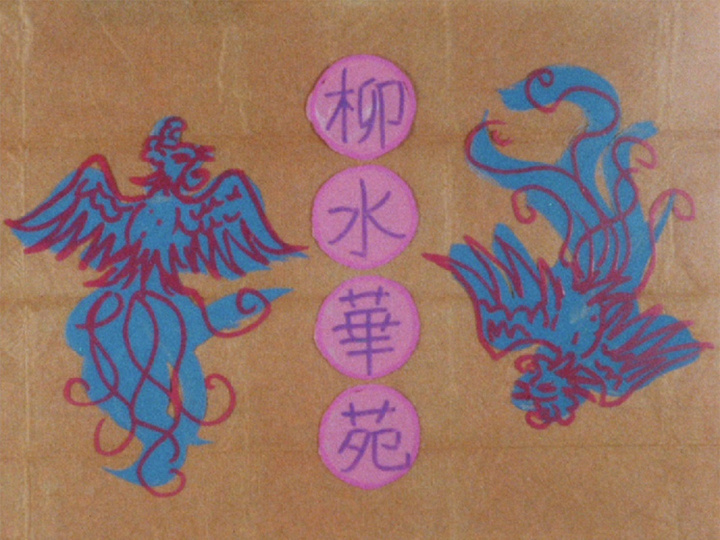 柳水華苑